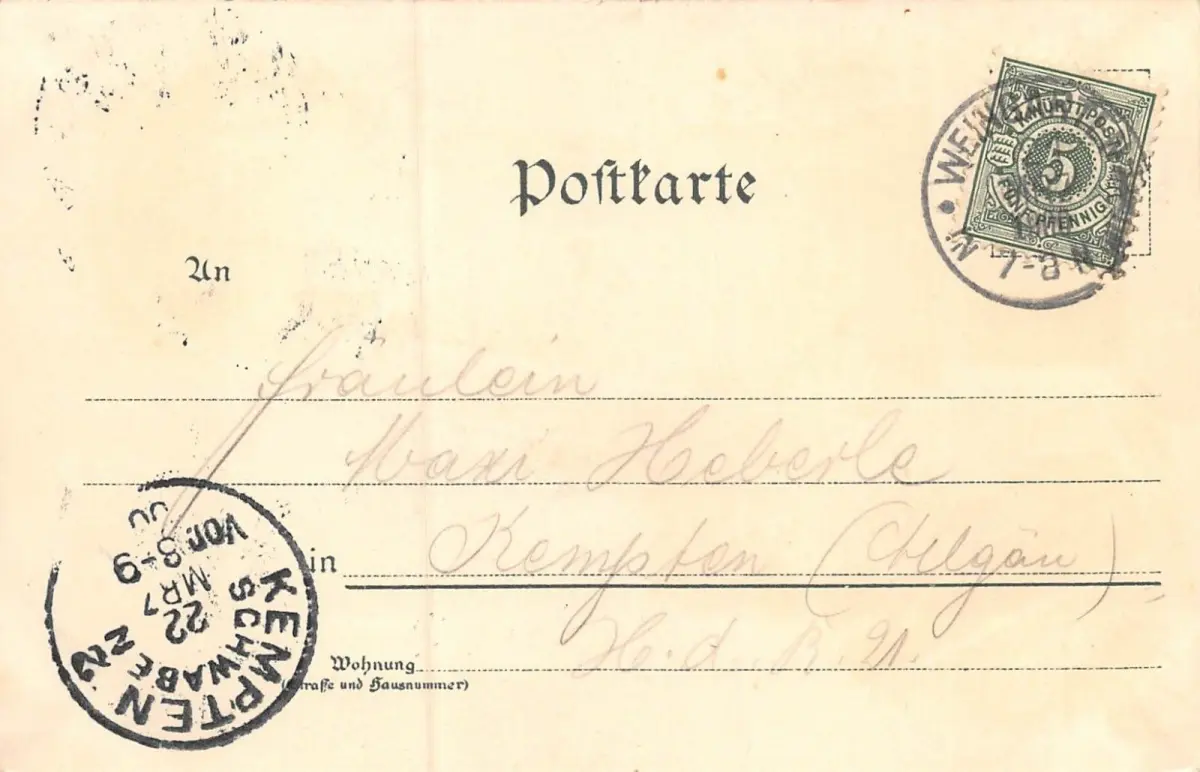 Postkarte
K. WÜRTT. POST
5
FÜNF PFENNIG
WEING
7-8 N
An
Fräulein
Maxi Heberle
in Kempten (Allgäu)
Wohnung
(Straße und Hausnummer)
H. d. R. 21.
KEMPTEN
SCHWABEN
22
MRZ
VOR. 8-9
00